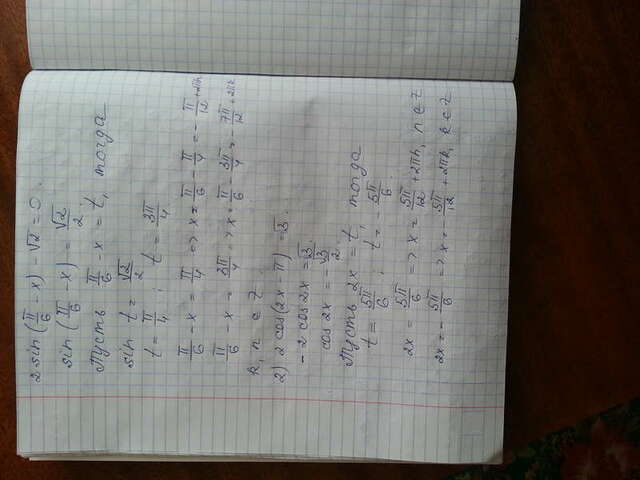 2 sin (π/6 - x) - √2 = 0.
sin (π/6 - x) = √2/2
Пусть π/6 - x = t, тогда
sin t = √2/2
t = π/4 ; t = 3π/4
π/6 - x = π/4 => x = π/6 - π/4 = - π/12 + 2πn
π/6 - x = 3π/4 => x = π/6 - 3π/4 = - 7π/12 + 2πk
k, n ∈ Z
2) 2 cos (2x - π) = √3.
- 2 cos 2x = √3
cos 2x = - √3/2
Пусть 2x = t, тогда
t = 5π/6 ; t = - 5π/6
2x = 5π/6 => x = 5π/12 + 2πn, n ∈ Z
2x = - 5π/6 => x = - 5π/12 + 2πk, k ∈ Z